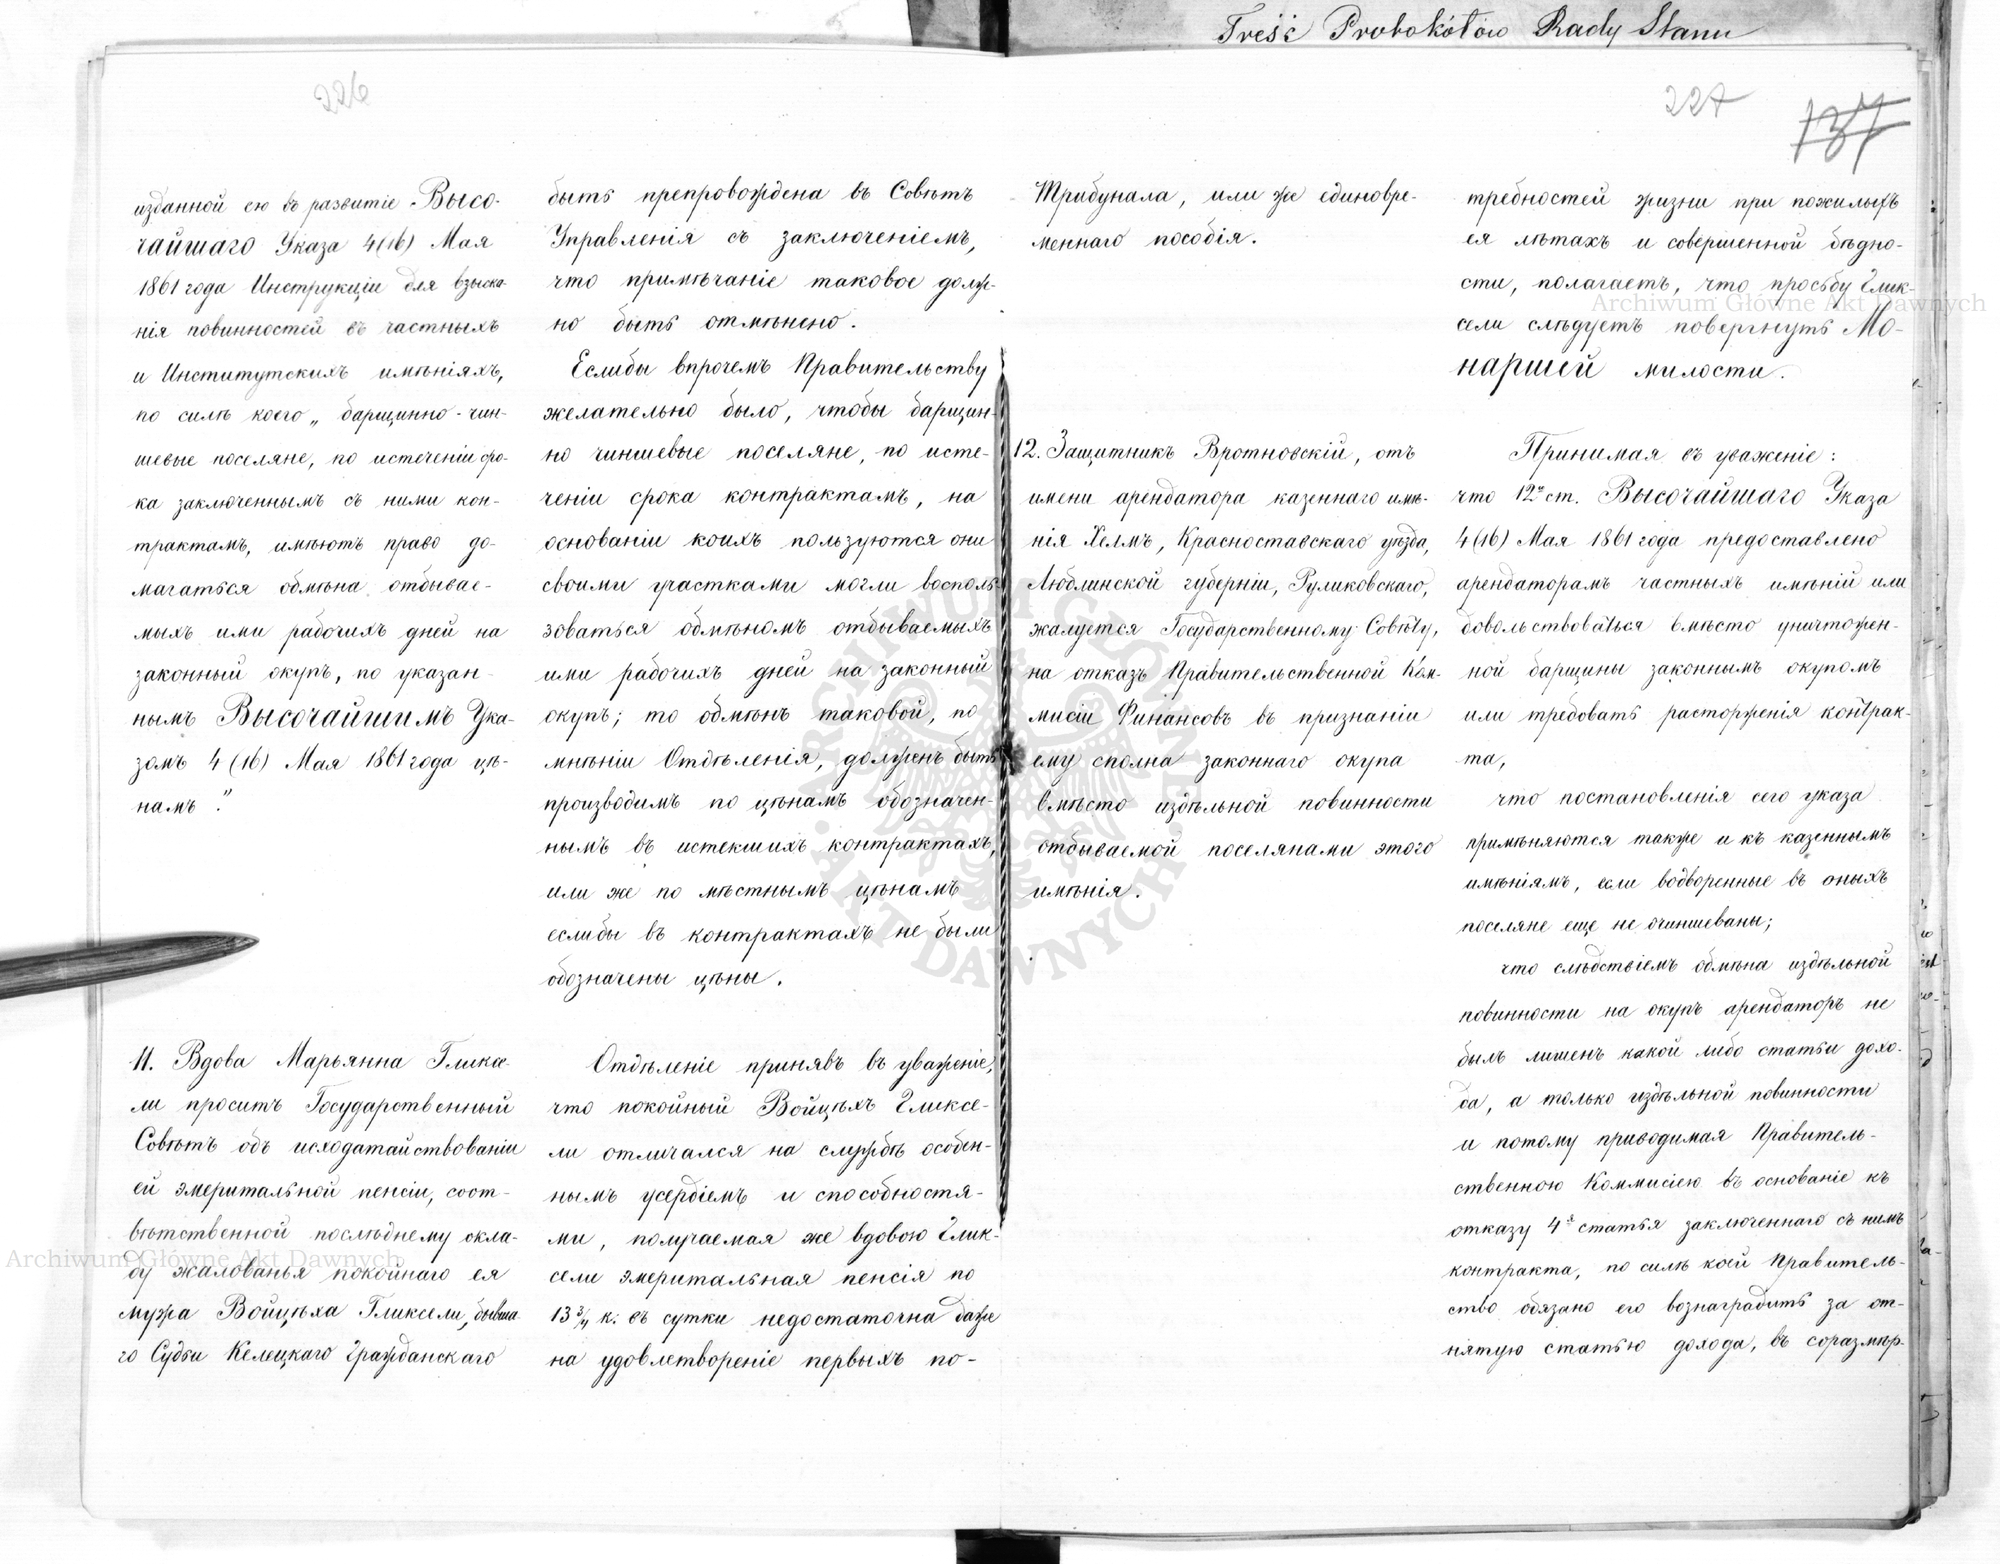 Treść Protokółów Rady Stanu
226
изданной ею въ развитіе Высо-
чайшаго Указа 4(16) Мая
1861 года Инструкціи для взыска-
нія повинностей въ частныхъ
и Институтскихъ имѣніяхъ,
по силѣ коего „барщинно-чин-
шевые поселяне, по истеченіи сро-
ка заключеннымъ съ ними кон-
трактамъ, имѣютъ право до-
магаться обмѣна отбывае-
мыхъ ими рабочихъ дней на
законный окупъ, по указан-
нымъ Высочайшимъ Ука-
зомъ 4 (16) Мая 1861 года цѣ-
намъ."
11. Вдова Марьянна Гликсе-
ли проситъ Государственный
Совѣтъ объ исходатайствованіи
ей эмеритальной пенсіи, соот-
вѣтственной послѣднему окла-
ду жалованья покойнаго ея
мужа Войцѣха Гликсели, бывша-
го Судьи Келецкаго Гражданскаго
быть препровождена въ Совѣтъ
Управленія съ заключеніемъ,
что примѣчаніе таковое долж-
но быть отмѣнено.
Еслибы впрочемъ Правительству
желательно было, чтобы барщин-
но чиншевые поселяне, по исте-
ченіи срока контрактамъ, на
основаніи коихъ пользуются они
своими участками могли восполь-
зоваться обмѣномъ отбываемыхъ
ими рабочихъ дней на законный
окупъ; то обмѣнъ таковой, по
мнѣнію Отдѣленія, долженъ быть
производимъ по цѣнамъ обозначен-
нымъ въ истекшихъ контрактахъ,
или же по мѣстнымъ цѣнамъ
еслибы въ контрактахъ не были
обозначены цѣны.
Отдѣленіе принявъ въ уваженіе,
что покойный Войцѣхъ Гликсе-
ли отличался на службѣ особен-
нымъ усердіемъ и способностя-
ми, получаемая же вдовою Глик-
сели эмеритальная пенсія по
13 3/4 к: въ сутки недостаточна даже
на удовлетвореніе первыхъ по-
227
137
Трибунала, или же единовре-
меннаго пособія.
12. Защитникъ Вротновскій, отъ
имени арендатора казеннаго имѣ-
нія Хелмъ, Красноставскаго уѣзда,
Люблинской губерніи, Руликовскаго,
жалуется Государственному Совѣту,
на отказъ Правительственной Ком-
мисіи Финансовъ въ признаніи
ему сполна законнаго окупа
вмѣсто издѣльной повинности
отбываемой поселянами этого
имѣнія.
требностей жизни при пожилыхъ
ея лѣтахъ и совершенной бѣдно-
сти, полагаетъ, что просьбу Глик-
сели слѣдуетъ повергнуть Мо-
наршей милости.
Принимая въ уваженіе:
что 12я ст. Высочайшаго Указа
4(16) Мая 1861 года предоставлено
арендаторамъ частныхъ имѣній или
довольствоваться вмѣсто уничтожен-
ной барщины законнымъ окупомъ
или требовать расторженія контрак-
та,
что постановленія сего указа
примѣняются также и къ казеннымъ
имѣніямъ, если водворенные въ оныхъ
поселяне еще не очиншеваны;
что слѣдствіемъ обмѣна издѣльной
повинности на окупъ арендаторъ не
былъ лишенъ какой либо статьи дохо-
да, а только издѣльной повинности
и потому приводимая Правитель-
ственною Коммисіею въ основаніе къ
отказу 4я статья заключеннаго съ нимъ
контракта, по силѣ коей Правитель-
ство обязано его вознаградить за от-
нятую статью дохода, въ соразмѣр-
Archiwum Główne Akt Dawnych
Archiwum Główne Akt Dawnych
ARCHIWUM GŁÓWNE AKT DAWNYCH